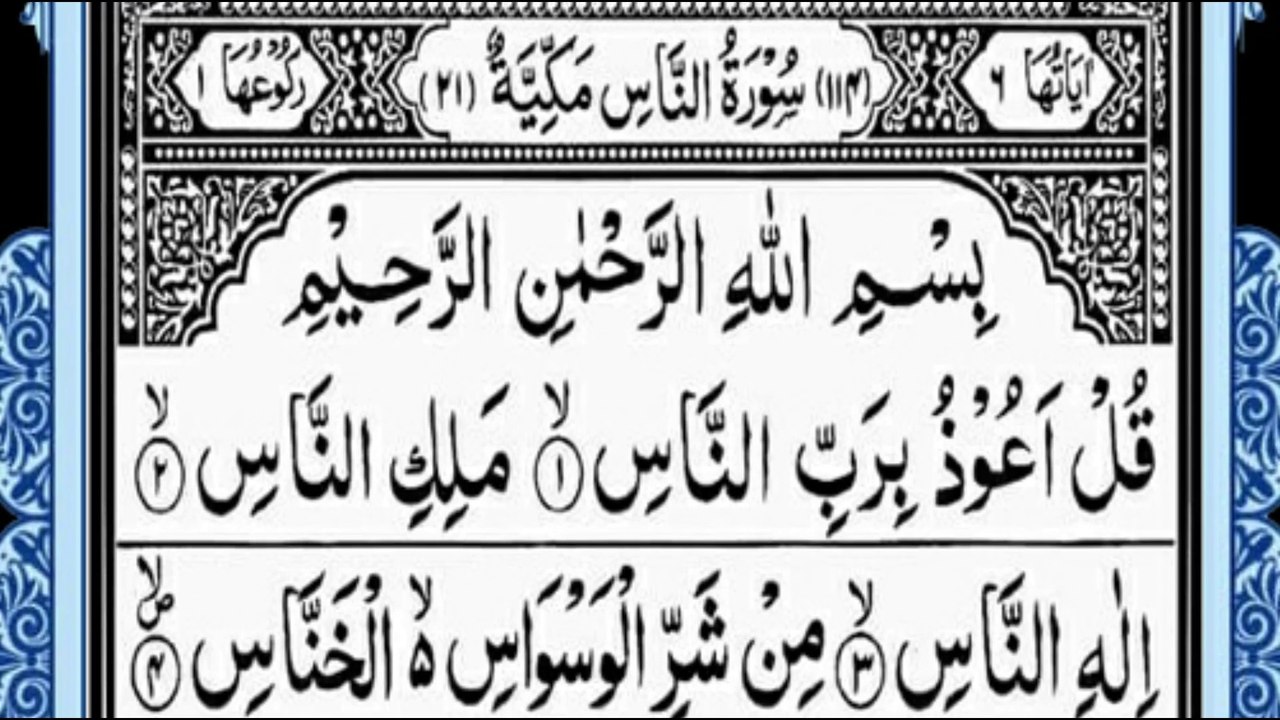 اٰيَاتُهَا ٦ (١١٤) سُوْرَةُ النَّاسِ مَكِّيَّةٌ (٢١) رُكُوْعُهَا ١
بِسْمِ اللّٰهِ الرَّحْمٰنِ الرَّحِيْمِ
قُلْ اَعُوْذُ بِرَبِّ النَّاسِۙ ١ مَلِكِ النَّاسِۙ ٢
اِلٰهِ النَّاسِۙ ٣ مِنْ شَرِّ الْوَسْوَاسِ ۙ۵ الْخَنَّاسِ ۙ ص ۴